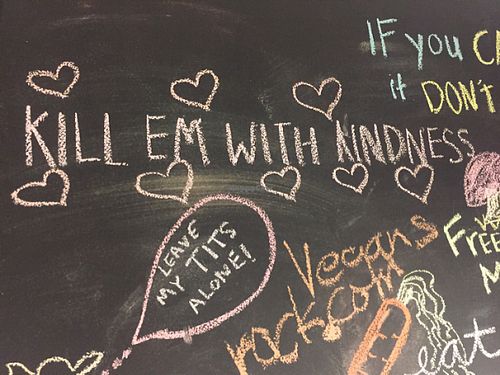 IF you CA
it DON'T
KILL EM WITH KINDNESS
LEAVE
MY TITS
ALONE!
Vegans
rock.com
FREE
eat